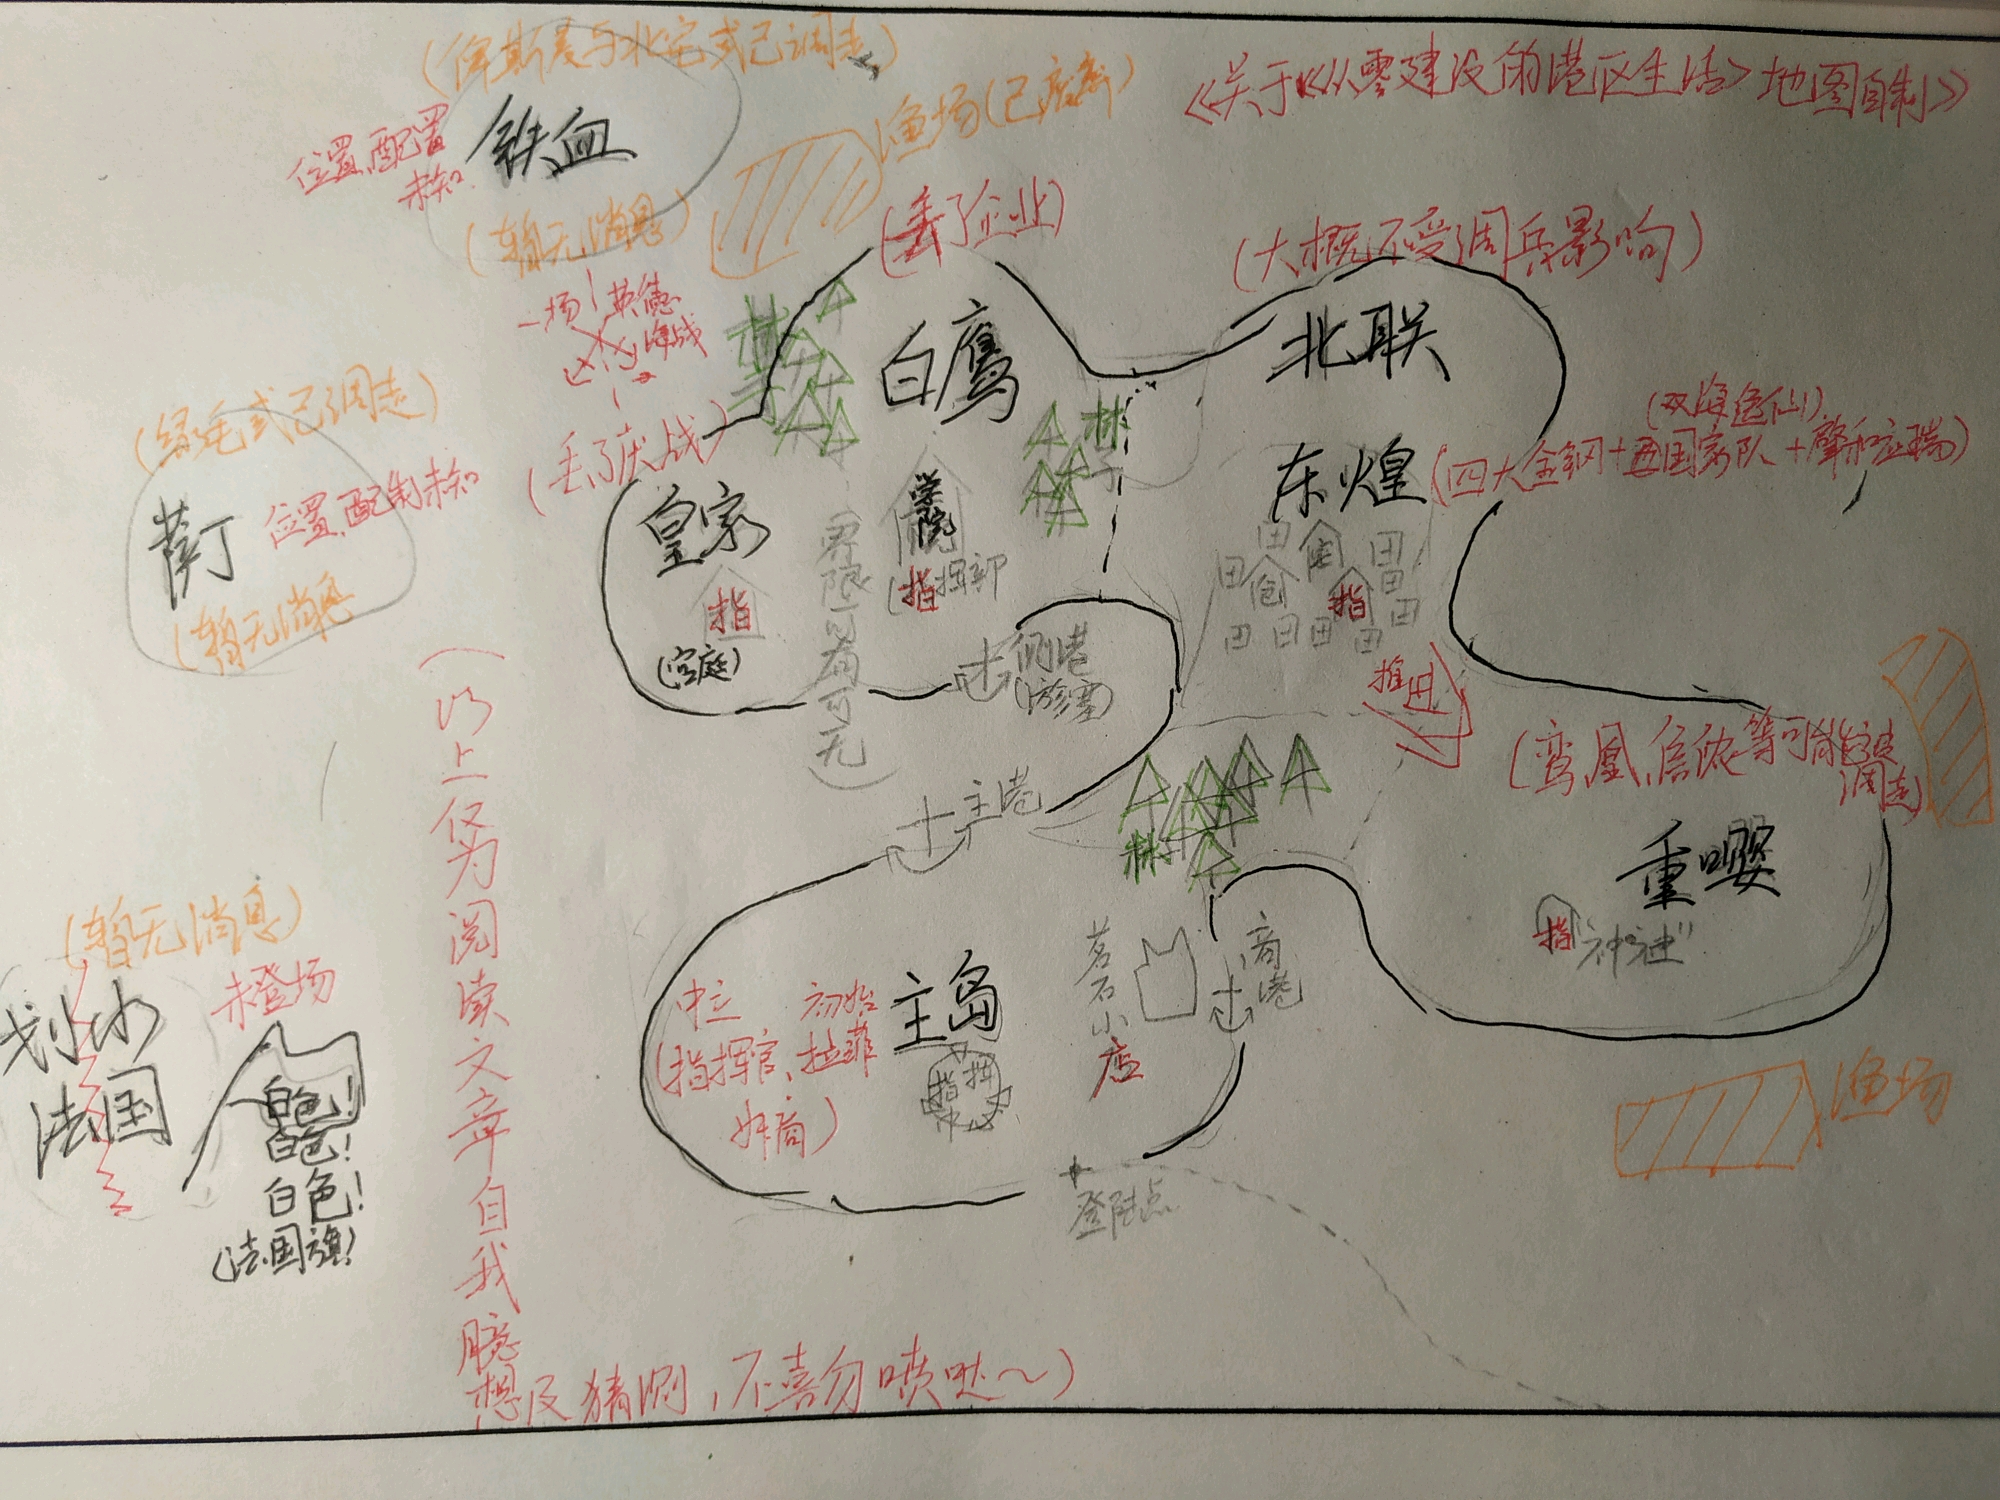 《关于《从零建设的港区生活》地图自制》
(俾斯麦与北宅或已调走)
铁血
位置、配置
未知
(暂无消息)
渔场(已废弃)
(丢了企业)
(大概不受调兵影响)
一场英德
海战
林
白鹰
北联
(绿毛或已调走)
萨丁
位置、配制未知
(暂无消息)
(丢了厌战)
皇家
指
(宫庭)
学院
(指挥部
界限可有可无)
林
东煌
(双海逸仙)
(四大金刚+四国家队+肇和应瑞)
田
田
田
田
田
田
田
田
田
指
推田
侧港
主港
林
(鸾、凰、信浓等可能已被
调走)
重嘤
指
"神社"
渔场
(暂无消息)
划水
法国
未登场
白色!
白色!
白色!
(法国旗)
主岛
中立
(指挥官、初始
拉菲
奸商)
指挥
中心
茗石小店
商港
登陆点
(以上仅为阅读文章自我臆想及猜测,不喜勿喷哒~)